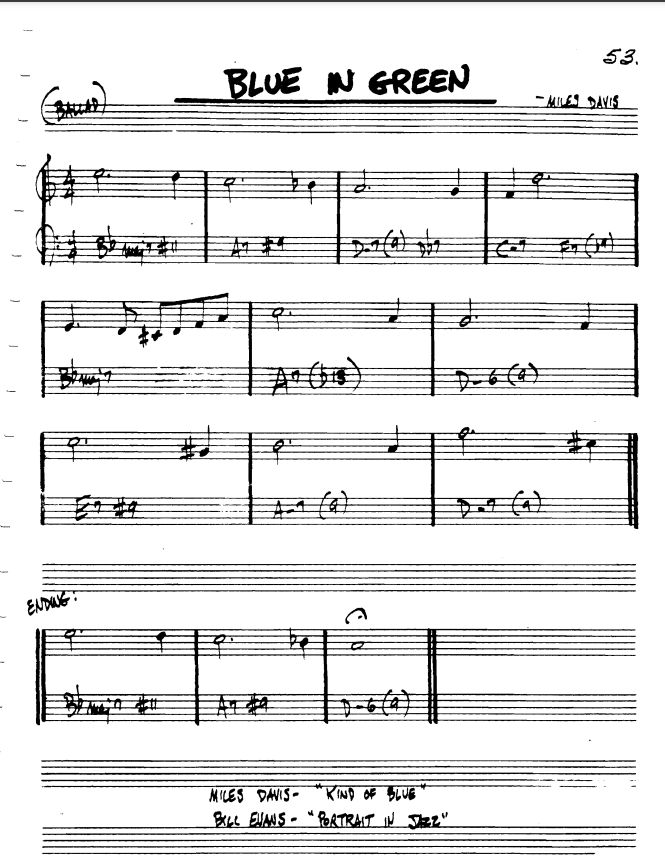 53.
BLUE IN GREEN
(BALLAD)
- MILES DAVIS
4/4
Bb maj7 #11 A7 #9 D-7 (9) Db7 C-7 F7 (b9)
Bb maj7 A7 (b13) D-6 (9)
E7 #9 A-7 (9) D-7 (9)
ENDING:
Bb maj7 #11 A7 #9 D-6 (9)
MILES DAVIS- "KIND OF BLUE"
BILL EVANS- "PORTRAIT IN JAZZ"